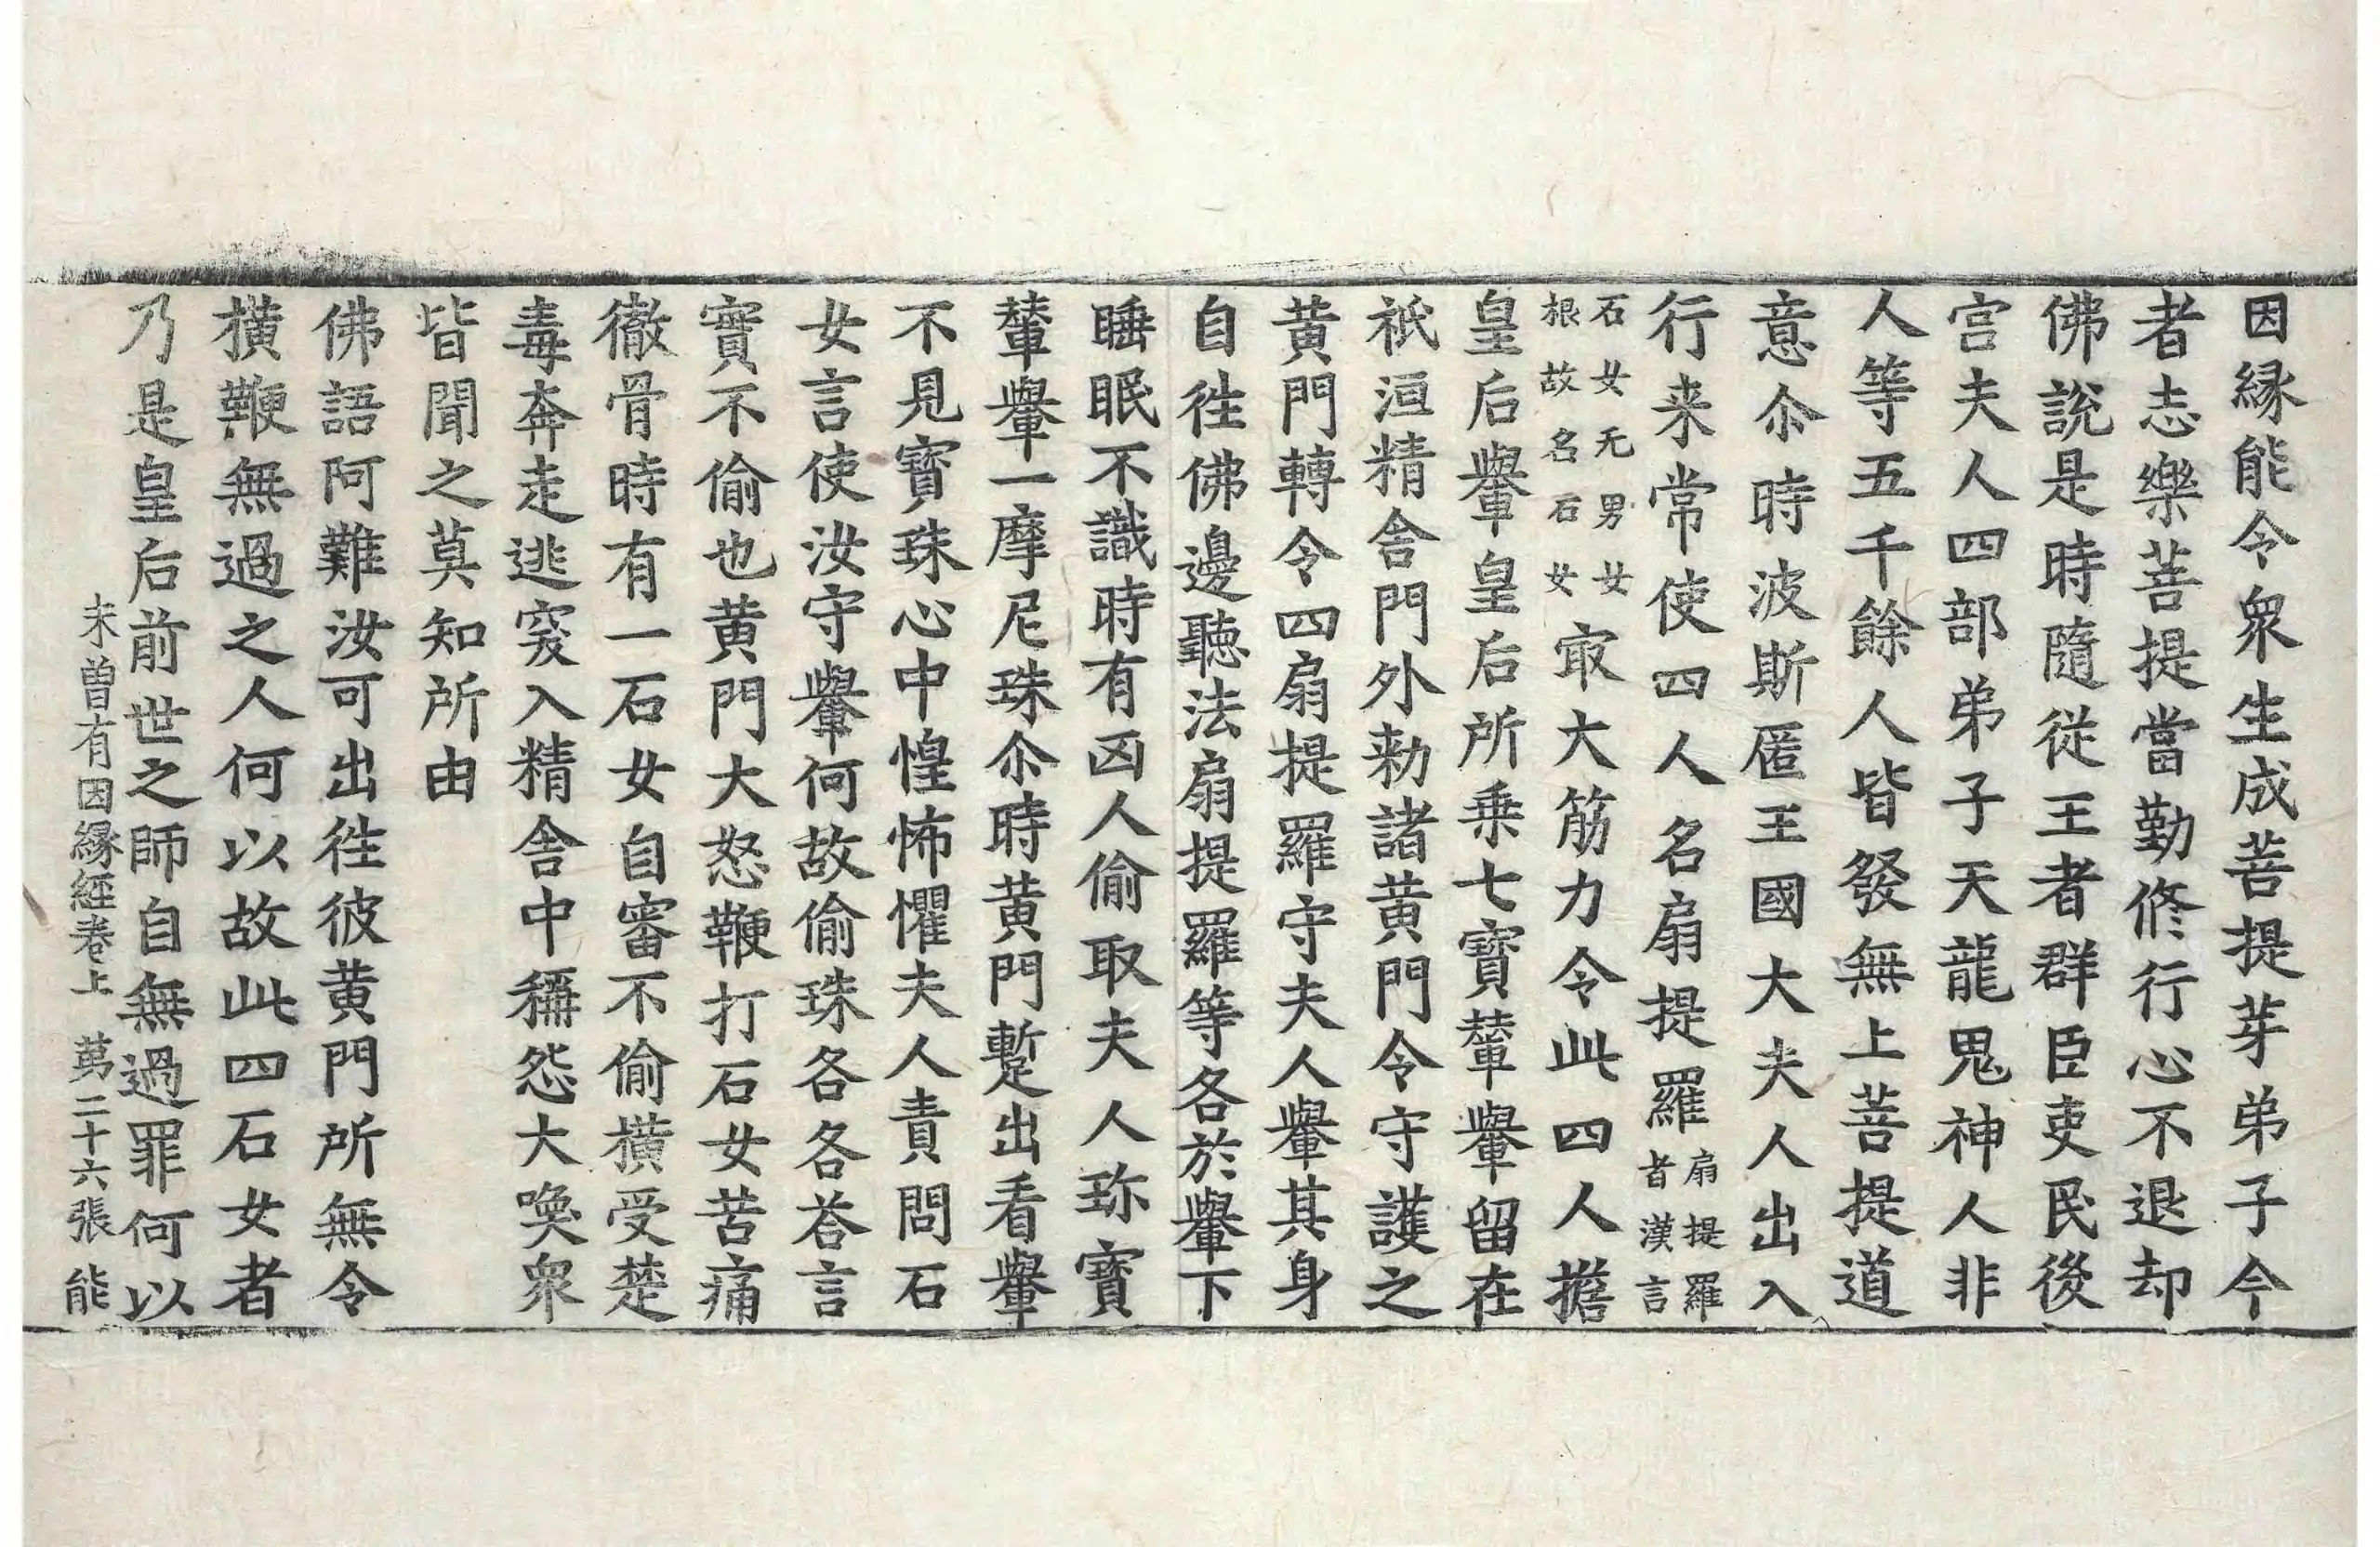 因緣能令衆生成菩提芽弟子今
者志樂菩提當勤修行心不退却
佛說是時隨從王者群臣吏民後
宮夫人四部弟子天龍鬼神人非
人等五千餘人皆發無上菩提道
意尒時波斯匿王國大夫人出入
行来常使四人名扇提羅扇提羅者漢言
石女无男女根故名石女㝡大筋力令此四人擔
皇后轝皇后所乗七寶輦轝留在
祇洹精舎門外勑諸黄門令守護之
黄門轉令四扇提羅守夫人轝其身
自徃佛邊聽法扇提羅等各於轝下
睡眠不識時有凶人偷取夫人珎寶
輦轝一摩尼珠尒時黄門暫出看轝
不見寶珠心中惶怖懼夫人責問石
女言使汝守轝何故偷珠各各荅言
實不偷也黄門大怒鞭打石女苦痛
徹骨時有一石女自審不偷横受楚
毒奔走逃突入精舎中稱怨大喚衆
皆聞之莫知所由
佛語阿難汝可出徃彼黄門所無令
横鞭無過之人何以故此四石女者
乃是皇后前世之師自無過罪何以
未曽有因緣經卷上 苐二十六張 能